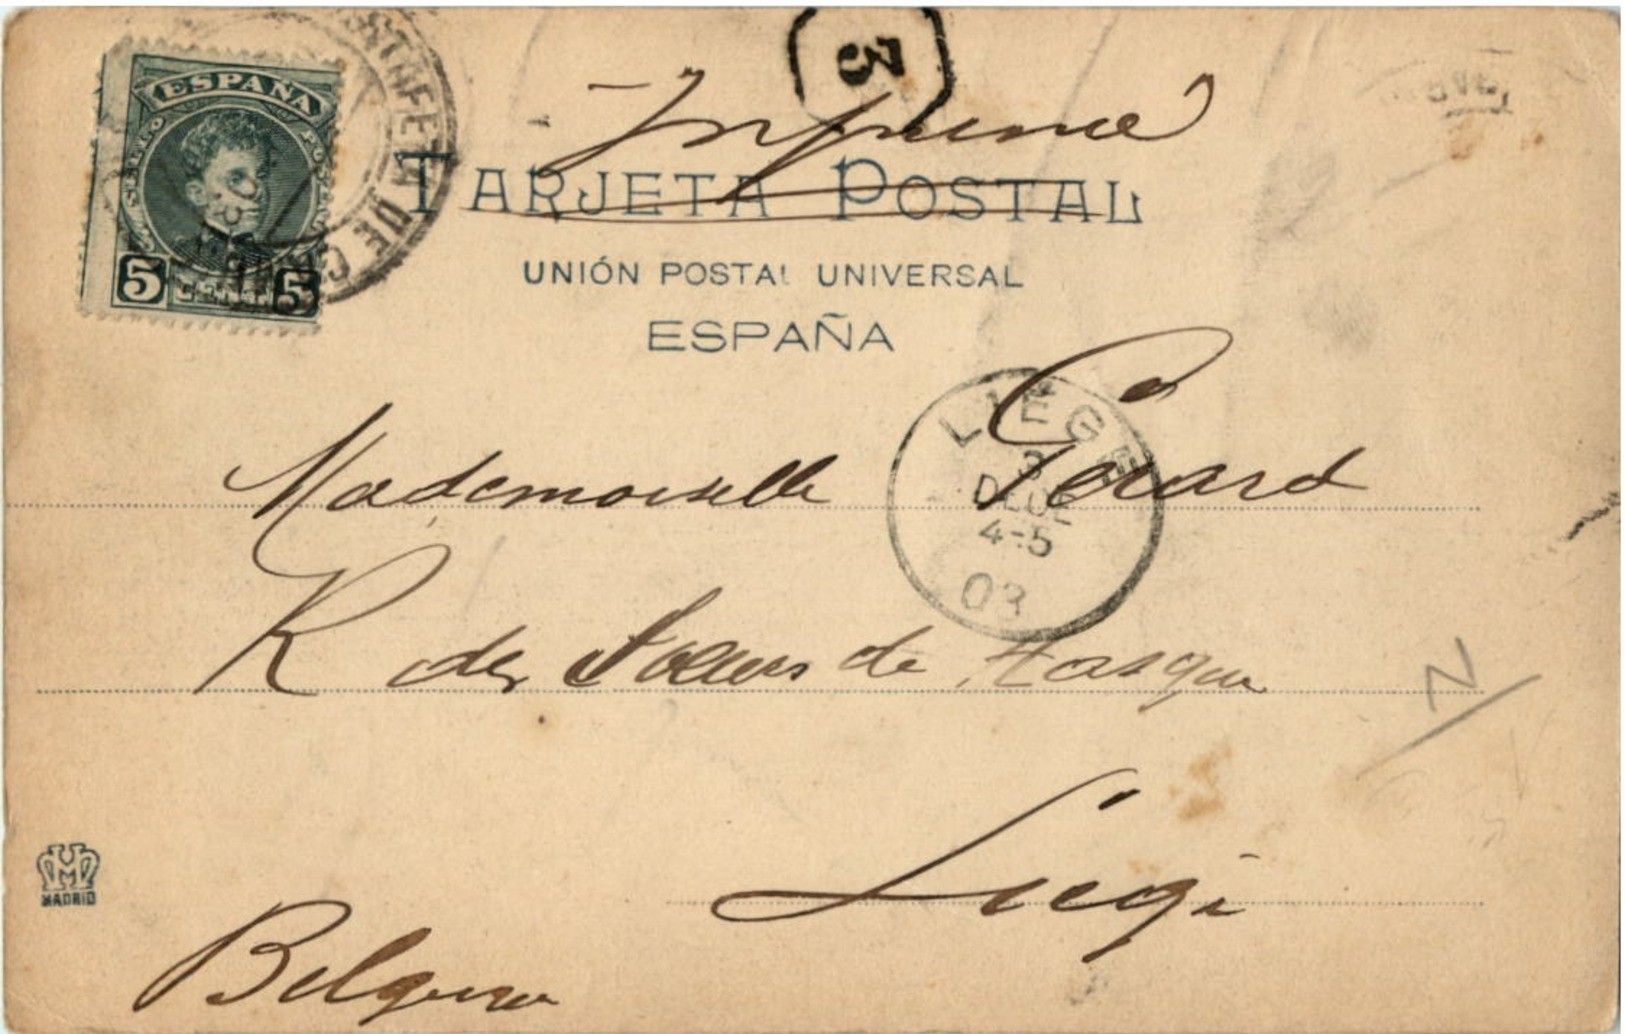 ESPAÑA
5 5
3
Imprimé
TARJETA POSTAL
UNIÓN POSTAL UNIVERSAL
ESPAÑA
LIÈGE
3
4-5
03
Mademoiselle Gérard
R des Sœurs de Hasque
N
Liège
MADRID
Belgique